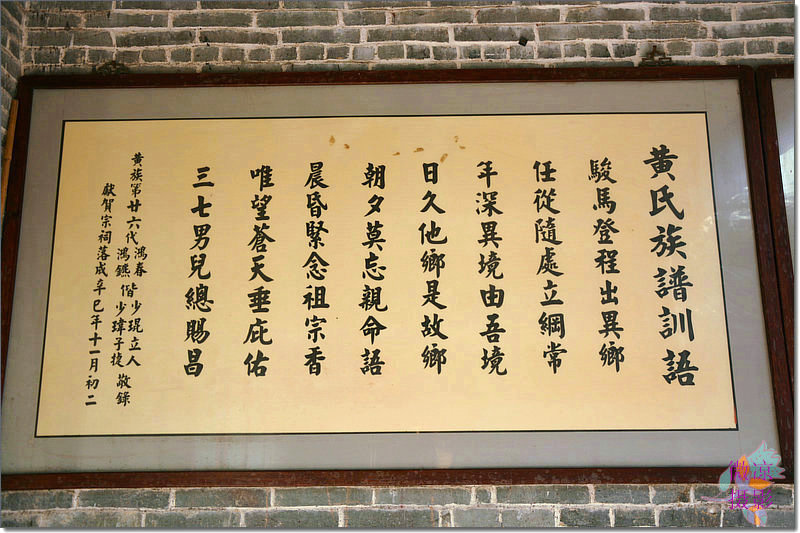 黃氏族譜訓語
駿馬登程出異鄉
任從隨處立綱常
年深異境由吾境
日久他鄉是故鄉
朝夕莫忘親命語
晨昏緊念祖宗香
唯望蒼天垂庇佑
三七男兒總賜昌
黄族第廿六代鴻春偕少琨立人
鴻燕少瑋子捷敬錄
獻賀宗祠落成辛巳年十一月初二
微凉
摄影